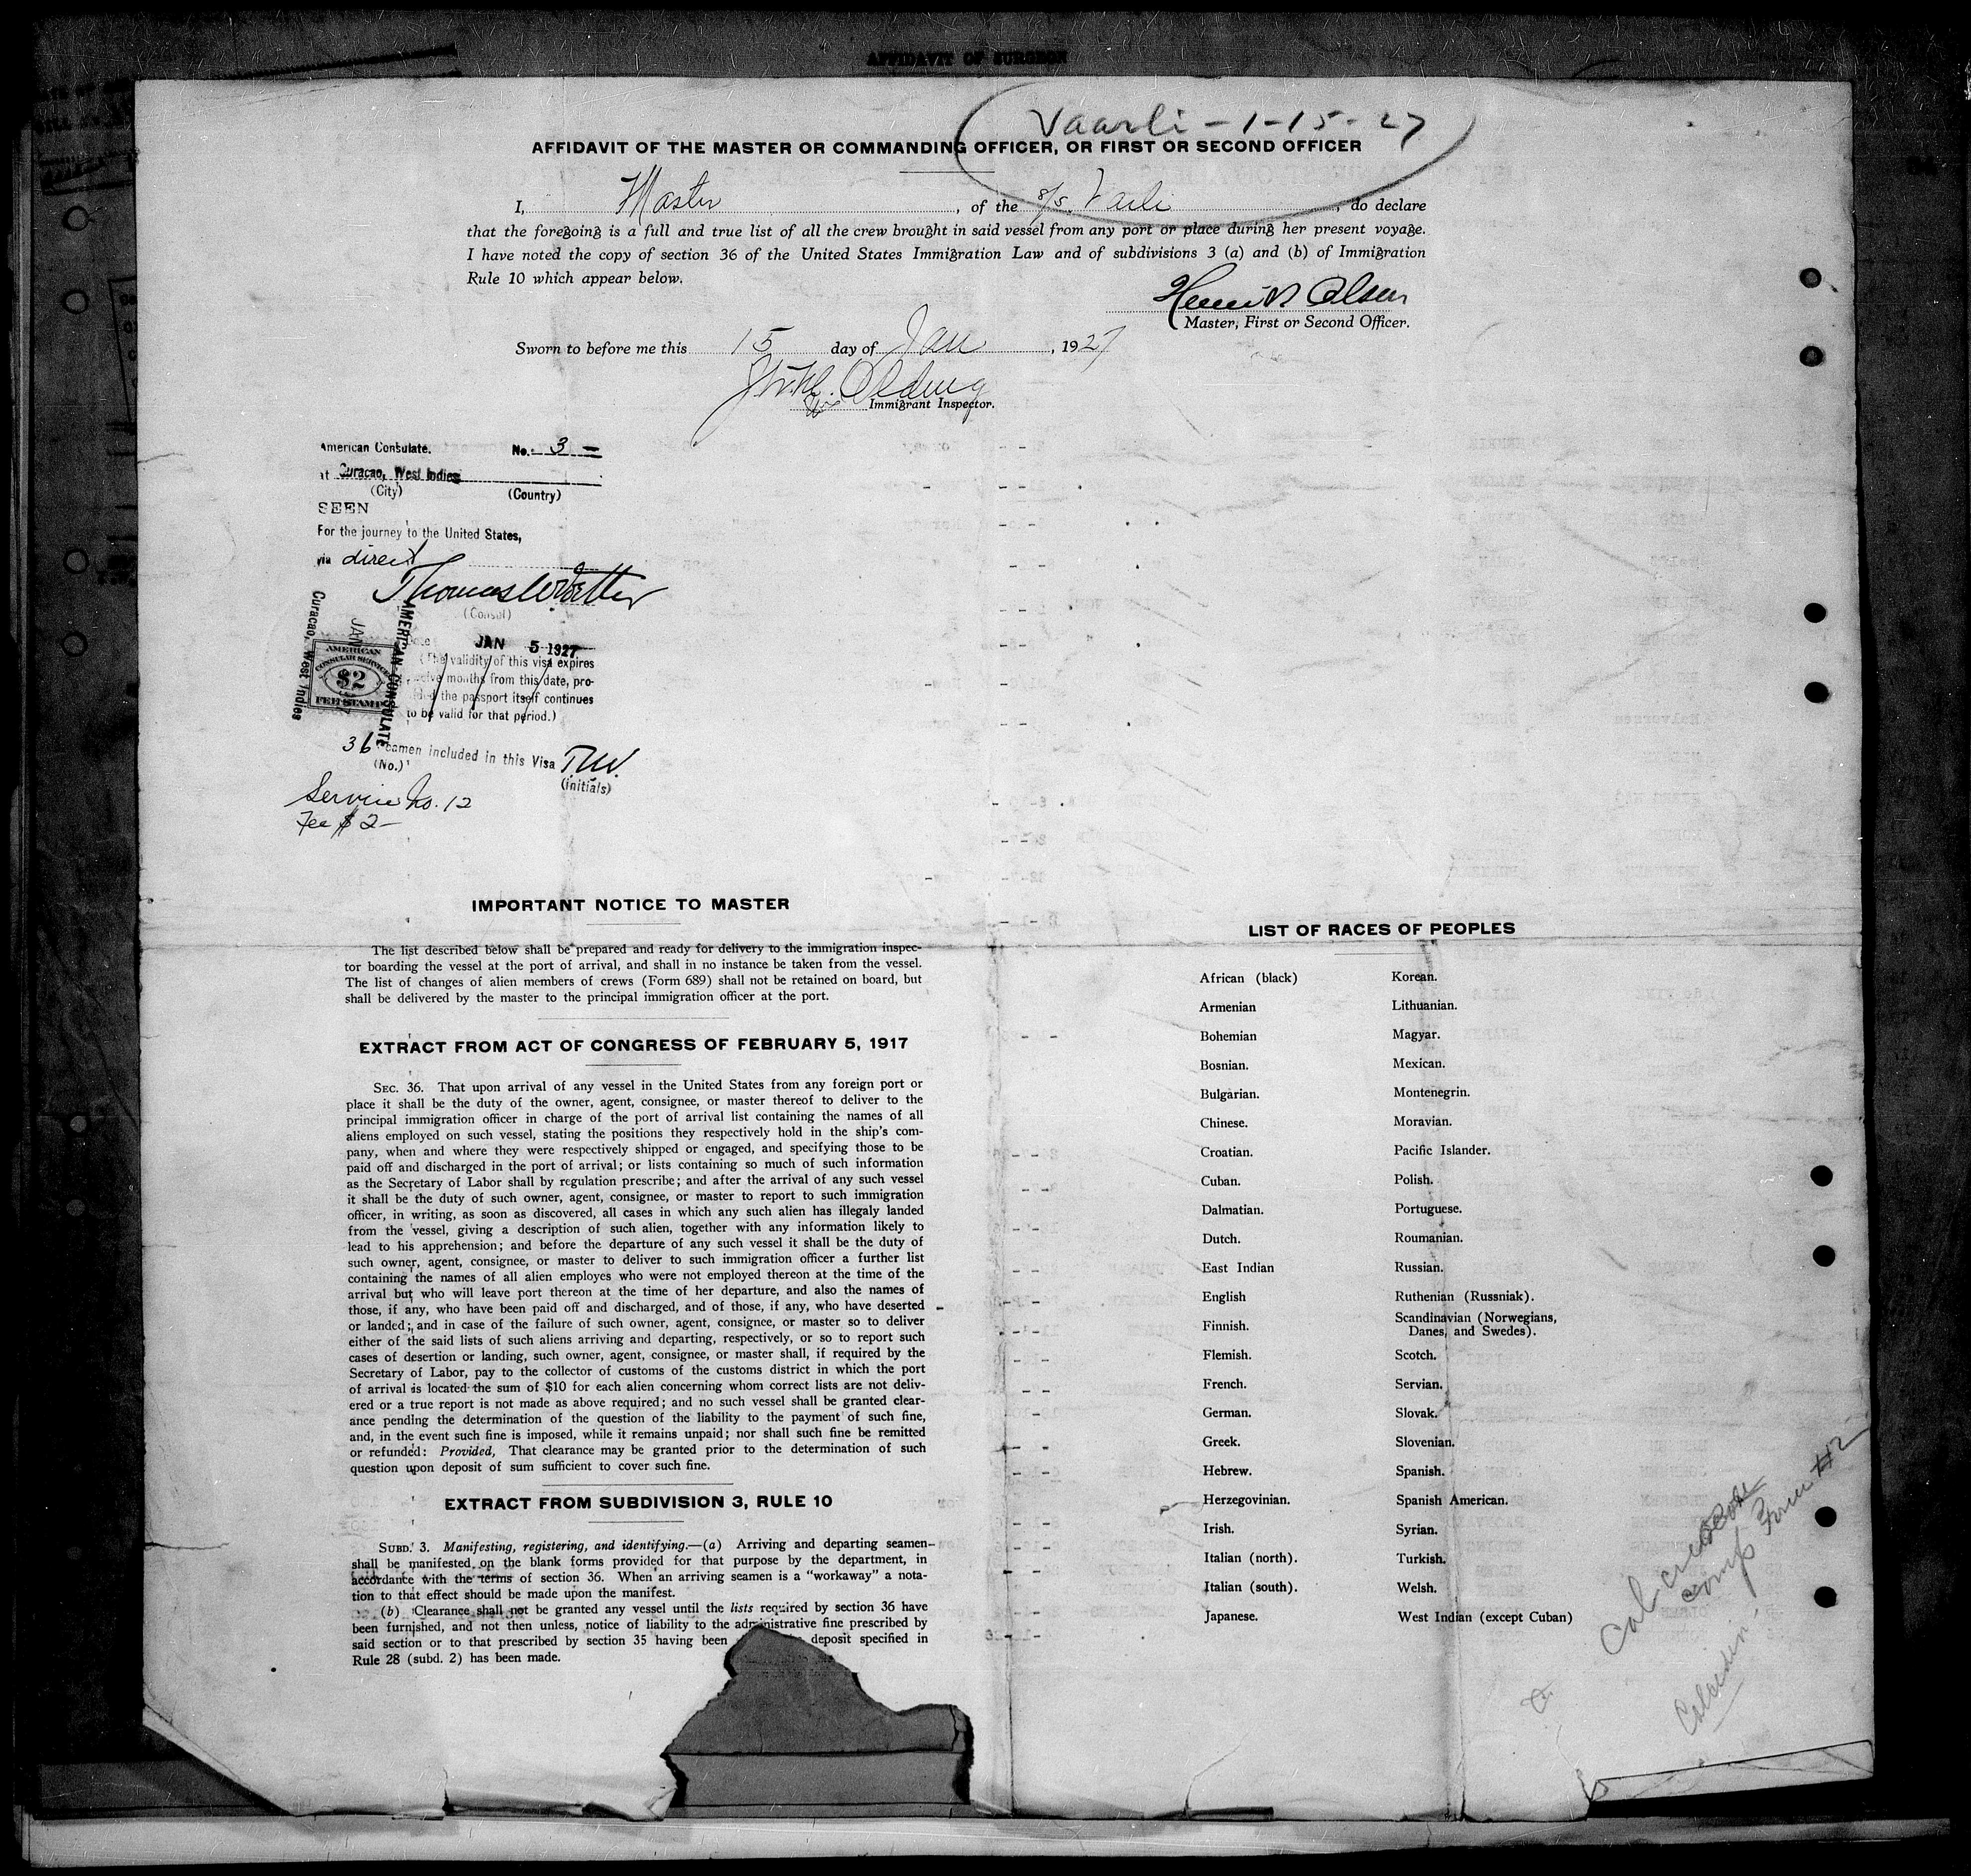 AFFIDAVIT OF SURGEON
Vaarli - 1-15-27
AFFIDAVIT OF THE MASTER OR COMMANDING OFFICER, OR FIRST OR SECOND OFFICER
I, Master, of the S/S. Varli, do declare
that the foregoing is a full and true list of all the crew brought in said vessel from any port or place during her present voyage.
I have noted the copy of section 36 of the United States Immigration Law and of subdivisions 3 (a) and (b) of Immigration
Rule 10 which appear below.
Henrik Olsen
Master, First or Second Officer.
Sworn to before me this 15 day of Jan, 1927
Immigrant Inspector.
American Consulate. No. 3 -
at Curacao, West Indies
(City) (Country)
SEEN
For the journey to the United States,
via direct
(Consul)
JAN 5 1927
(The validity of this visa expires
twelve months from this date, pro-
vided the passport itself continues
to be valid for that period.)
AMERICAN CONSULATE
Curacao, West Indies
JAN
AMERICAN
CONSULAR SERVICE
$2
FEE STAMP
36 Seamen included in this Visa T.W.
(No.) (initials)
Service No. 12
Fee $2-
IMPORTANT NOTICE TO MASTER
The list described below shall be prepared and ready for delivery to the immigration inspec-
tor boarding the vessel at the port of arrival, and shall in no instance be taken from the vessel.
The list of changes of alien members of crews (Form 689) shall not be retained on board, but
shall be delivered by the master to the principal immigration officer at the port.
EXTRACT FROM ACT OF CONGRESS OF FEBRUARY 5, 1917
SEC. 36. That upon arrival of any vessel in the United States from any foreign port or
place it shall be the duty of the owner, agent, consignee, or master thereof to deliver to the
principal immigration officer in charge of the port of arrival list containing the names of all
aliens employed on such vessel, stating the positions they respectively hold in the ship's com-
pany, when and where they were respectively shipped or engaged, and specifying those to be
paid off and discharged in the port of arrival; or lists containing so much of such information
as the Secretary of Labor shall by regulation prescribe; and after the arrival of any such vessel
it shall be the duty of such owner, agent, consignee, or master to report to such immigration
officer, in writing, as soon as discovered, all cases in which any such alien has illegaly landed
from the vessel, giving a description of such alien, together with any information likely to
lead to his apprehension; and before the departure of any such vessel it shall be the duty of
such owner, agent, consignee, or master to deliver to such immigration officer a further list
containing the names of all alien employes who were not employed thereon at the time of the
arrival but who will leave port thereon at the time of her departure, and also the names of
those, if any, who have been paid off and discharged, and of those, if any, who have deserted
or landed; and in case of the failure of such owner, agent, consignee, or master so to deliver
either of the said lists of such aliens arriving and departing, respectively, or so to report such
cases of desertion or landing, such owner, agent, consignee, or master shall, if required by the
Secretary of Labor, pay to the collector of customs of the customs district in which the port
of arrival is located the sum of $10 for each alien concerning whom correct lists are not deliv-
ered or a true report is not made as above required; and no such vessel shall be granted clear-
ance pending the determination of the question of the liability to the payment of such fine,
and, in the event such fine is imposed, while it remains unpaid; nor shall such fine be remitted
or refunded: Provided, That clearance may be granted prior to the determination of such
question upon deposit of sum sufficient to cover such fine.
EXTRACT FROM SUBDIVISION 3, RULE 10
SUBD. 3. Manifesting, registering, and identifying.—(a) Arriving and departing seamen
shall be manifested on the blank forms provided for that purpose by the department, in
accordance with the terms of section 36. When an arriving seamen is a "workaway" a nota-
tion to that effect should be made upon the manifest.
(b) Clearance shall not be granted any vessel until the lists required by section 36 have
been furnished, and not then unless, notice of liability to the administrative fine prescribed by
said section or to that prescribed by section 35 having been deposit specified in
Rule 28 (subd. 2) has been made.
LIST OF RACES OF PEOPLES
African (black) Korean.
Armenian Lithuanian.
Bohemian Magyar.
Bosnian. Mexican.
Bulgarian. Montenegrin.
Chinese. Moravian.
Croatian. Pacific Islander.
Cuban. Polish.
Dalmatian. Portuguese.
Dutch. Roumanian.
East Indian Russian.
English Ruthenian (Russniak).
Finnish. Scandinavian (Norwegians,
Danes, and Swedes).
Flemish. Scotch.
French. Servian.
German. Slovak.
Greek. Slovenian.
Hebrew. Spanish.
Herzegovinian. Spanish American.
Irish. Syrian.
Italian (north). Turkish.
Italian (south). Welsh.
Japanese. West Indian (except Cuban)